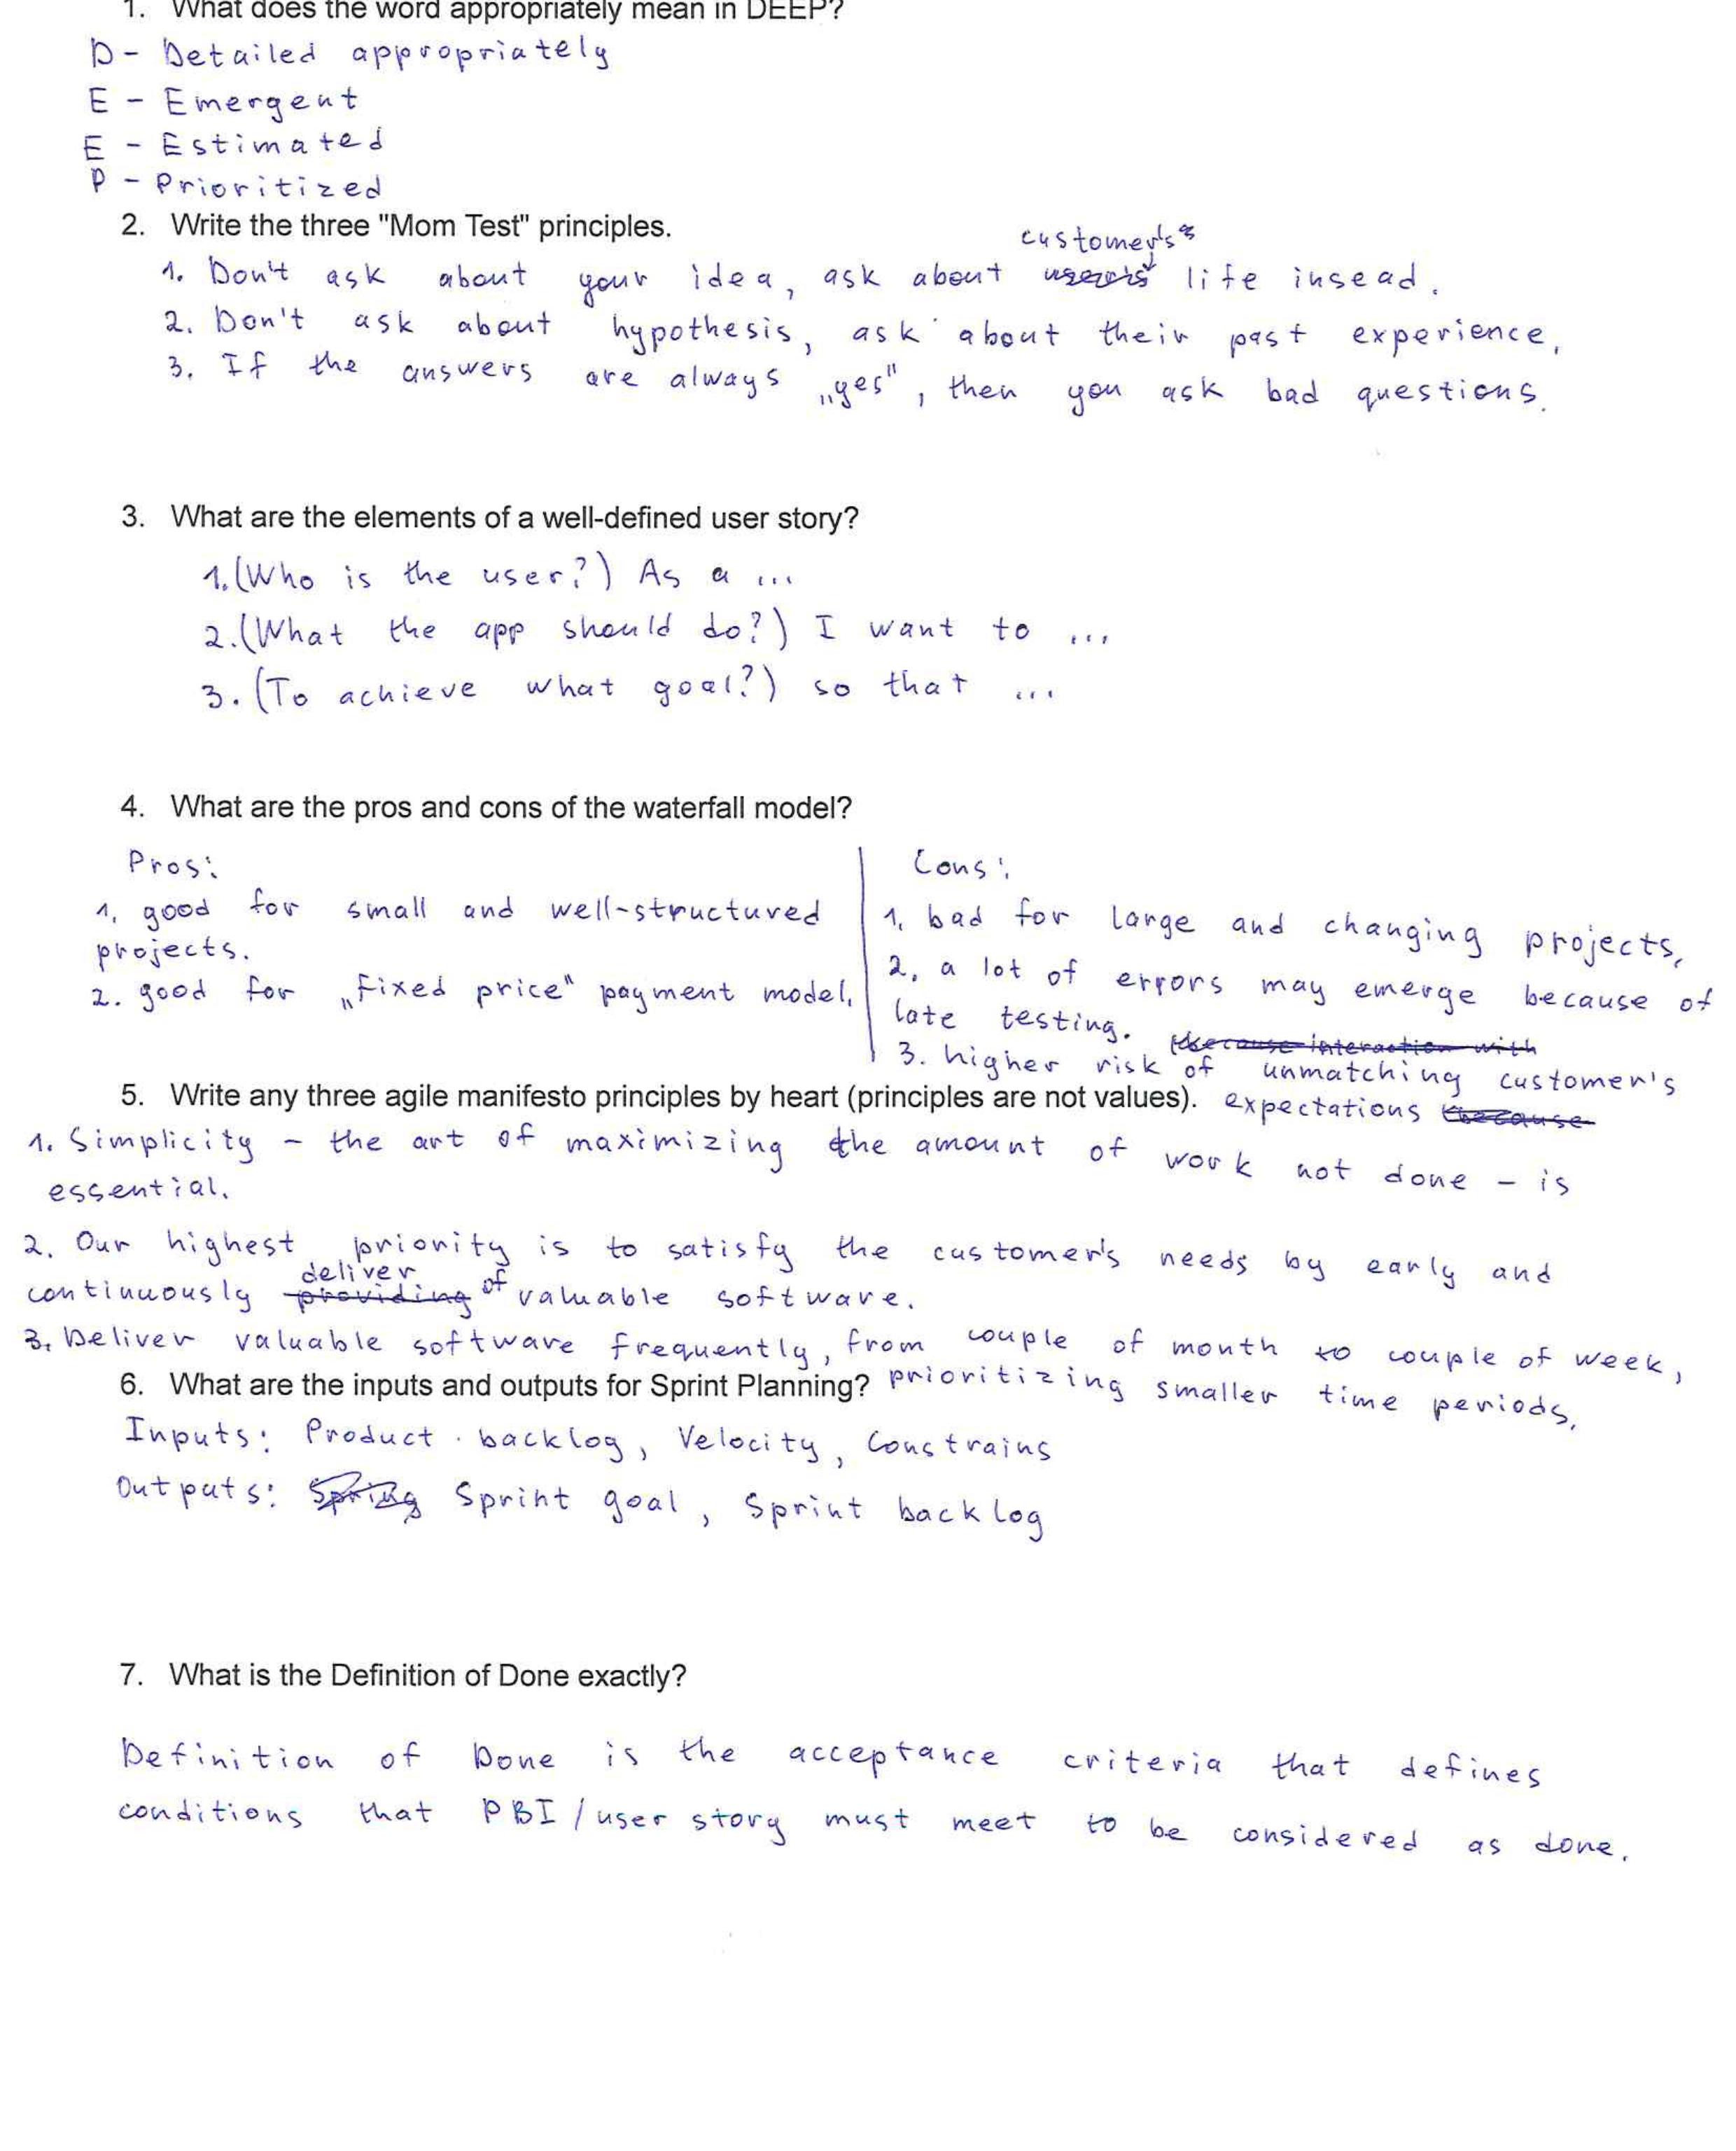 1. What does the word appropriately mean in DEEP?
D - Detailed appropriately
E - Emergent
E - Estimated
P - Prioritized
2. Write the three "Mom Test" principles.
customer's
1. Don't ask about your idea, ask about user's life insead.
2. Don't ask about hypothesis, ask about their past experience.
3. If the answers are always „yes", then you ask bad questions.
3. What are the elements of a well-defined user story?
1. (Who is the user?) As a ...
2. (What the app should do?) I want to ...
3. (To achieve what goal?) so that ...
4. What are the pros and cons of the waterfall model?
Pros:
1. good for small and well-structured
projects.
2. good for „fixed price“ payment model.
Cons:
1. bad for large and changing projects,
2. a lot of errors may emerge because of
late testing. (because interaction with
3. higher risk of unmatching customer's
expectations (because
5. Write any three agile manifesto principles by heart (principles are not values).
1. Simplicity - the art of maximizing the amount of work not done - is
essential.
2. Our highest priority is to satisfy the customer's needs by early and
deliver
continuously providing of valuable software.
3. Deliver valuable software frequently, from couple of month to couple of week,
prioritizing smaller time periods.
6. What are the inputs and outputs for Sprint Planning?
Inputs: Product backlog, Velocity, Constrains
Outputs: Spring Sprint goal, Sprint backlog
7. What is the Definition of Done exactly?
Definition of Done is the acceptance criteria that defines
conditions that PBI / user story must meet to be considered as done.